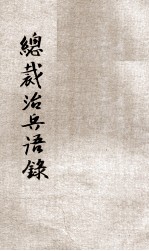 總裁治兵语錄